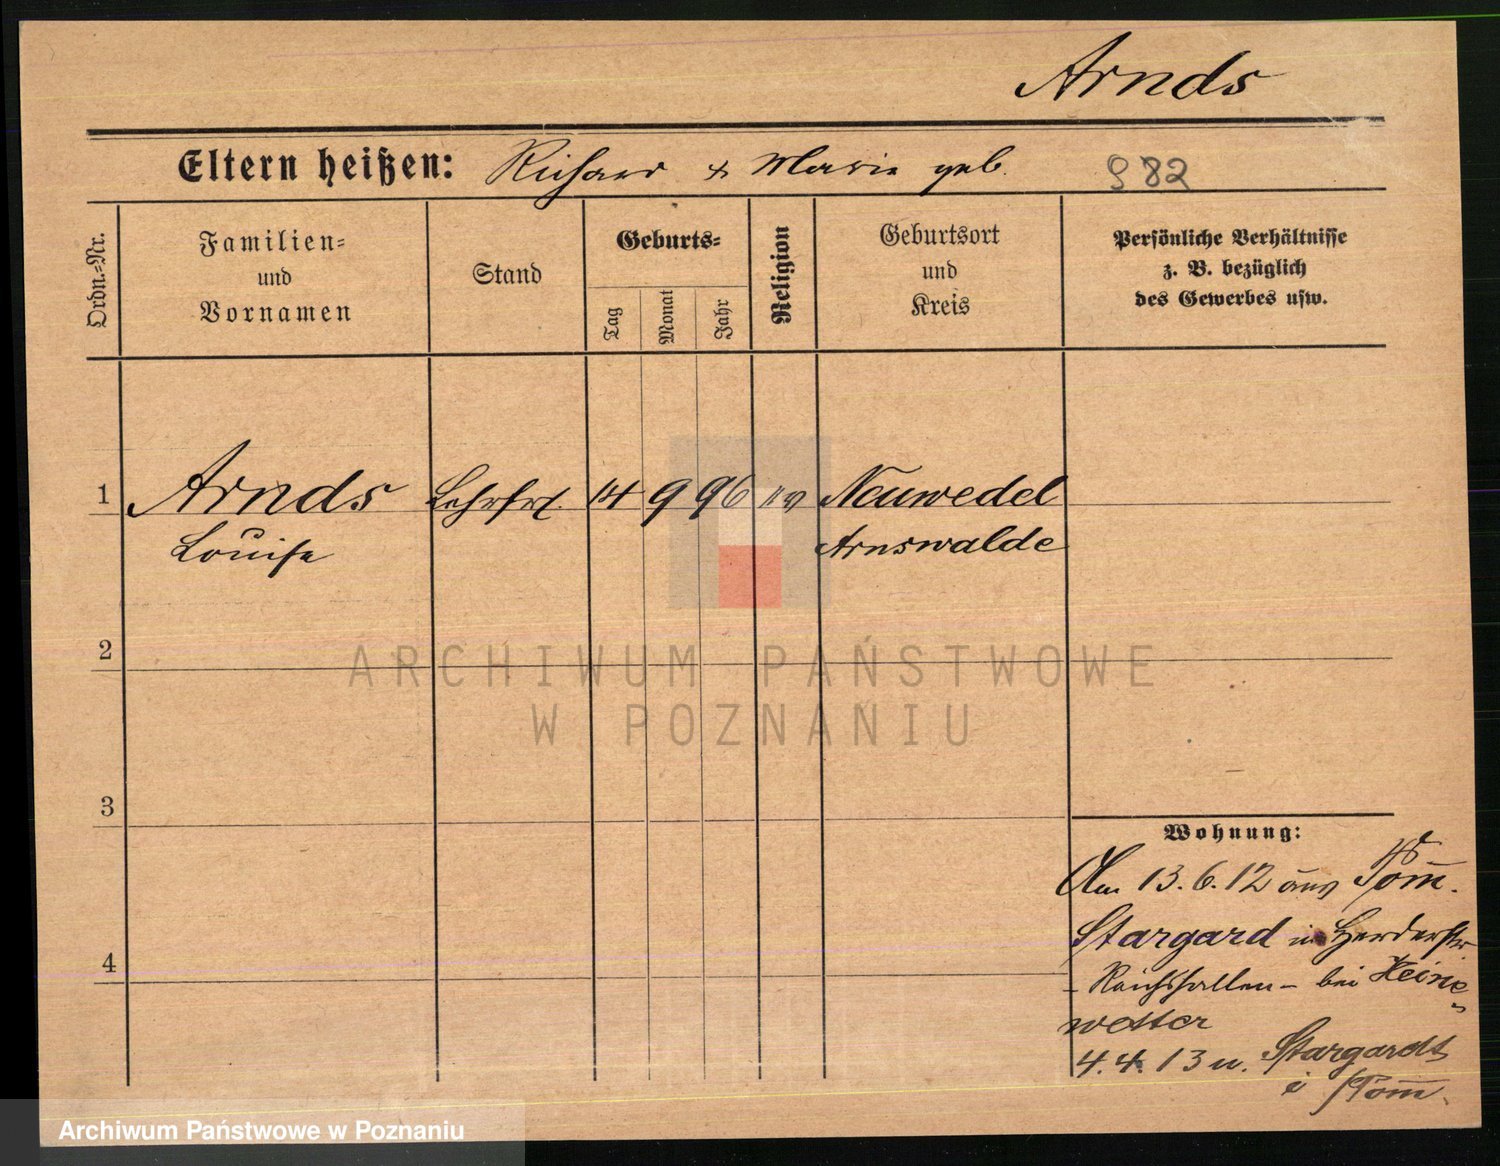 Arnds
Eltern heißen: Richard & Marie geb. 982
Ordn.=Nr.
Familien=
und
Vornamen
Stand
Geburts=
Tag
Monat
Jahr
Religion
Geburtsort
und
Kreis
Persönliche Verhältnisse
z. B. bezüglich
des Gewerbes usw.
1 Arnds Lehrfrl. 14 9 96 ev Neuwedel
Louise Arnswalde
2
3
4
Wohnung:
Am 13.6.12 aus Pom.
Stargard in Herderstr
- Reichshallen - bei Heine-
wetter
4.4.13 n. Stargardt
i Pom.
ARCHIWUM PAŃSTWOWE
W POZNANIU
Archiwum Państwowe w Poznaniu